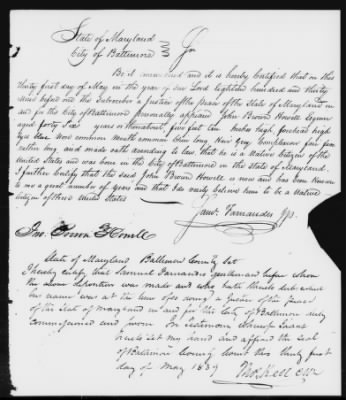 State of Maryland
City of Baltimore
Be it remembered and it is hereby Certified that on this
thirty first day of May in the year of our Lord Eighteen hundred and thirty
nine before me the Subscriber a Justice of the peace of the State of Maryland in
and for the City of Baltimore personally appeared John Brown Howell
aged forty years or thereabout, five feet ten inches high, forehead high
eyes blue nose common mouth common chin long Hair Grey, Complexion fair face
rather long, and made oath according to law that he is a Native Citizen of the
United States and was born in the City of Baltimore in the State of Maryland.
I further Certify that the said John Brown Howell is now and has been known
to me a great number of years and that he verily believes him to be a Native
Citizen of the United States
Saml. Farnandis
Jno. Brown Howell
State of Maryland Baltimore County Sct
I hereby certify that Samuel Farnandis Gentleman before whom
the above deposition was made and who hath thereto subscribed
his name was at the time of so doing a Justice of the peace
of the State of Maryland in and for the City of Baltimore duly
commissioned and sworn In testimony whereof I have
hereto set my hand and affixed the seal
of Baltimore County Court this thirty first
day of May 1839
Thos Kell Clk